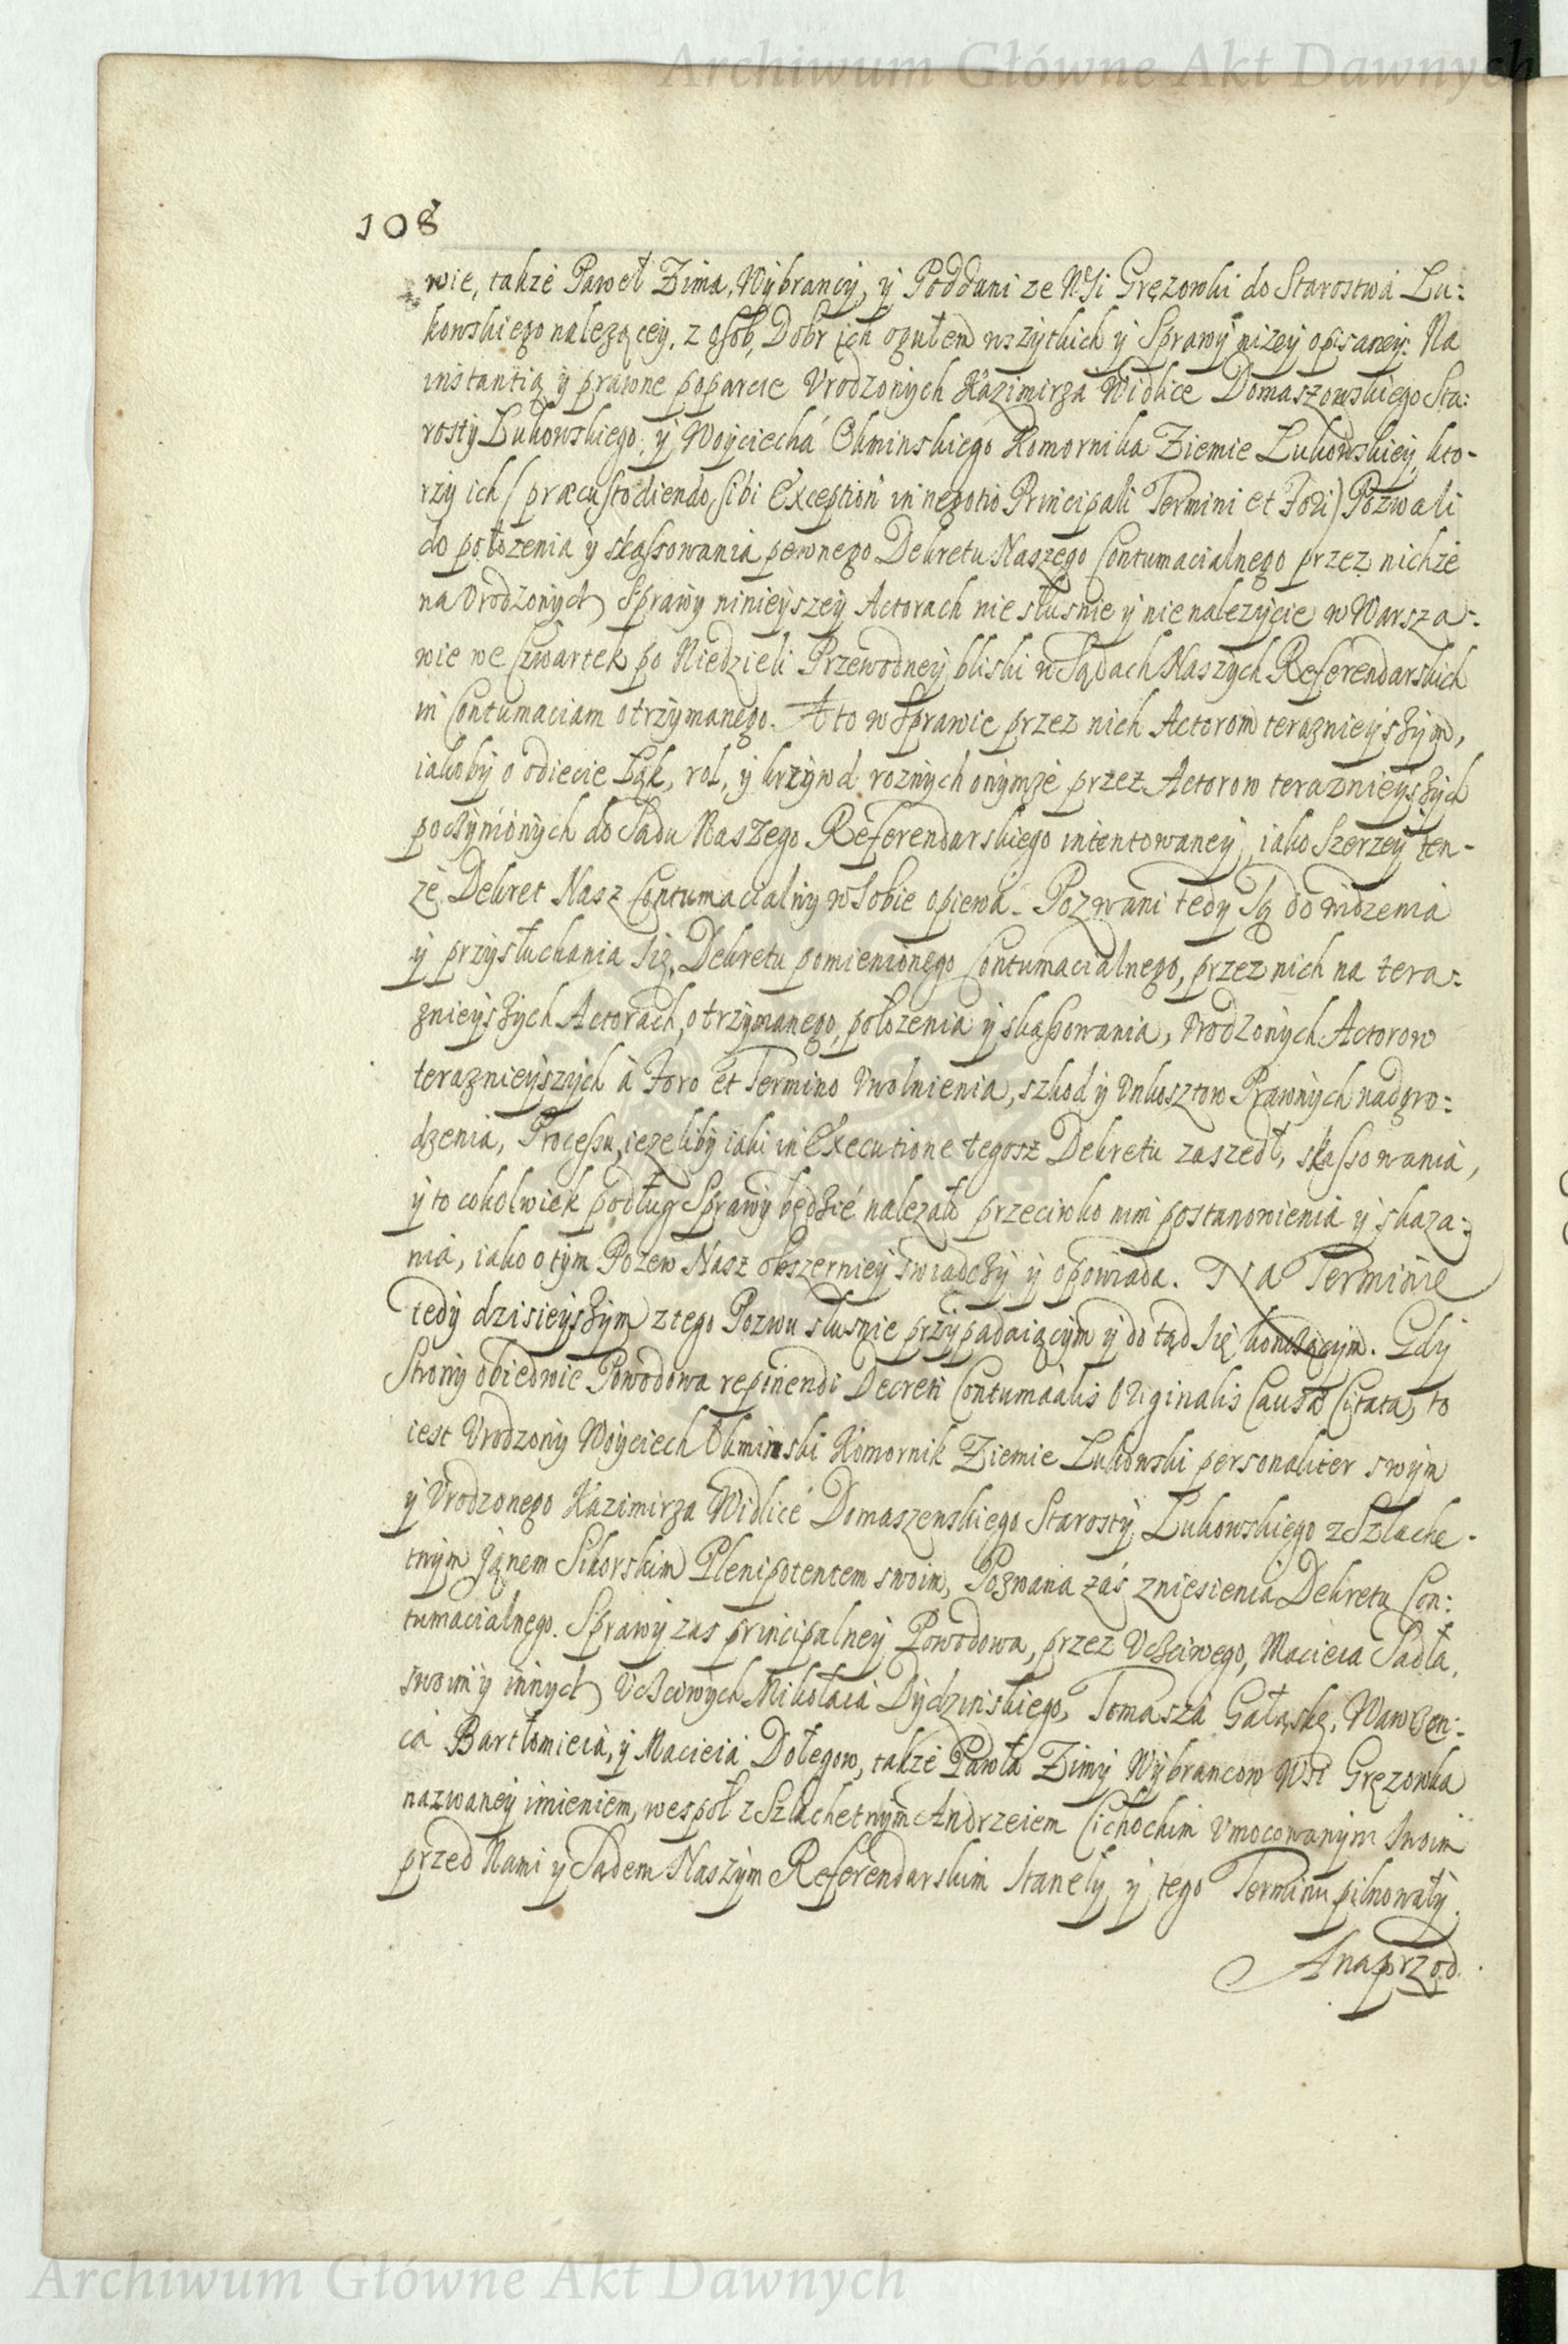 Archiwum Główne Akt Dawnych
108
wie, także Paweł Zima, Wybrancy, y Poddani ze Wsi Gręzowki do Starostwa Lu:
kowskiego należącey, z osob, Dobr ich ogułem wszytkich y Sprawy niżey opisaney: Na
instantią y prawne poparcie Urodzonych Kazimirza Widlice Domaszowskiego Sta:
rosty Lukowskiego, y Woyciecha Okminskiego Komornika Ziemie Lukowskiey, kto-
rzy ich (præcustodiendo sibi Exception in negotio Principali Termini et Fori) Pozwali
do położenia y skassowania pewnego Dekretu Naszego Contumacialnego przez nichże
na Urodzonych Sprawy ninieyszey Actorach niesłusnie y nienależycie w Warsza-
wie we Czwartek po Niedzieli Przewodney bliski w Sądach Naszych Referendarskich
in Contumaciam otrzymanego. A to w Sprawie przez nich Actorom teraznieyszym,
iakoby o odiecie Łąk, rol, y krzywd roznych onymże przez Actorow teraznieyszych
poczynionych do Sadu Naszego Referendarskiego intentowaney, iako szerzey ten-
że Dekret Nasz Contumacialny w sobie opiewa. Pozwani tedy są do widzenia
y przysłuchania się, Dekretu pomienionego Contumacialnego, przez nich na tera:
znieyszych Actorach otrzymanego, położenia y skassowania, Urodzonych Actorow
teraznieyszych à Foro et Termino Uwolnienia, szkod y Unkosztow Prawnych nadgro:
dzenia, Processu, ieżeliby iaki in Executione tegosz Dekretu zaszedł, skassowania,
y to cokolwiek podług Sprawy będzie należało przeciwko nim postanowienia y skaza:
nia, iako o tym Pozew Nasz obszerniey swiadczy y opowiada. Na Terminie
tedy dzisieyszym z tego Pozwu słusnie przypadaiącym y do tąd się kontinuiącym. Gdy
Strony obiedwie Powodowa Decreti Contumacialis Originalis Causæ Citata, to
iest Urodzony Woyciech Okminski Komornik Ziemie Lukowski personaliter swym
y Urodzonego Kazimirza Widlice Domaszenskiego Starosty Lukowskiego z Szlache-
tnym Janem Sikorskim Plenipotentem swoim, Pozwana zaś zniesienia Dekretu Con:
tumacialnego. Sprawy zas principalney Powodowa, przez Ucsciwego, Macieia Sadła,
swoim y innych Ucsciwych Mikołaia Dydzinskiego, Tomasza Gałąskę, Wawrzen:
ca Bartłomieia, y Macieia Dołegow, także Pawła Zimy Wybrancow Wsi Gręzowka
nazwaney imieniem, wespoł z Szlachetnym Andrzeiem Cichockim Umocowanym swoim
przed Nami y Sądem Naszym Referendarskim Stanęły y tego Terminu pilnowały.
Anaprzod
Archiwum Główne Akt Dawnych